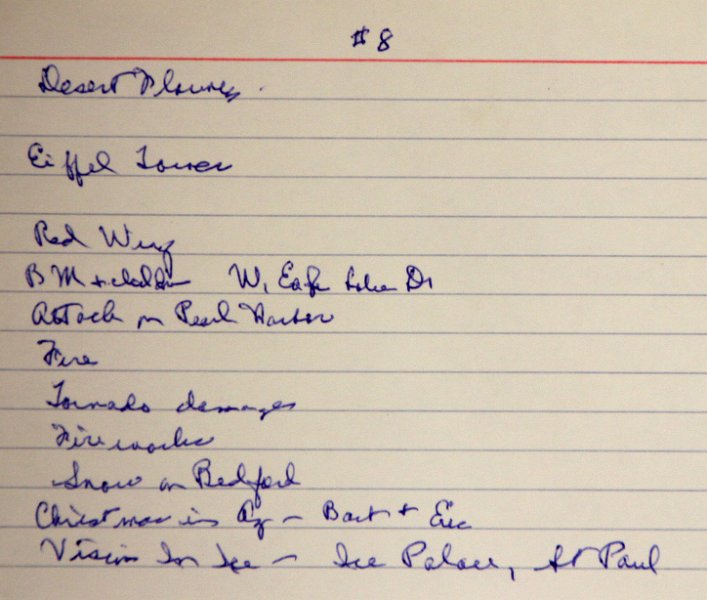 #8
Desert Flowers.
Eiffel Tower
Red Wing
BM + children W. Eagle Lake Dr
Attack on Pearl Harbor
Fire
Tornado damages
Fireworks
Snow on Bedford
Christmas in Az - Bart + Eric
Vision In Ice - Ice Palace, St Paul